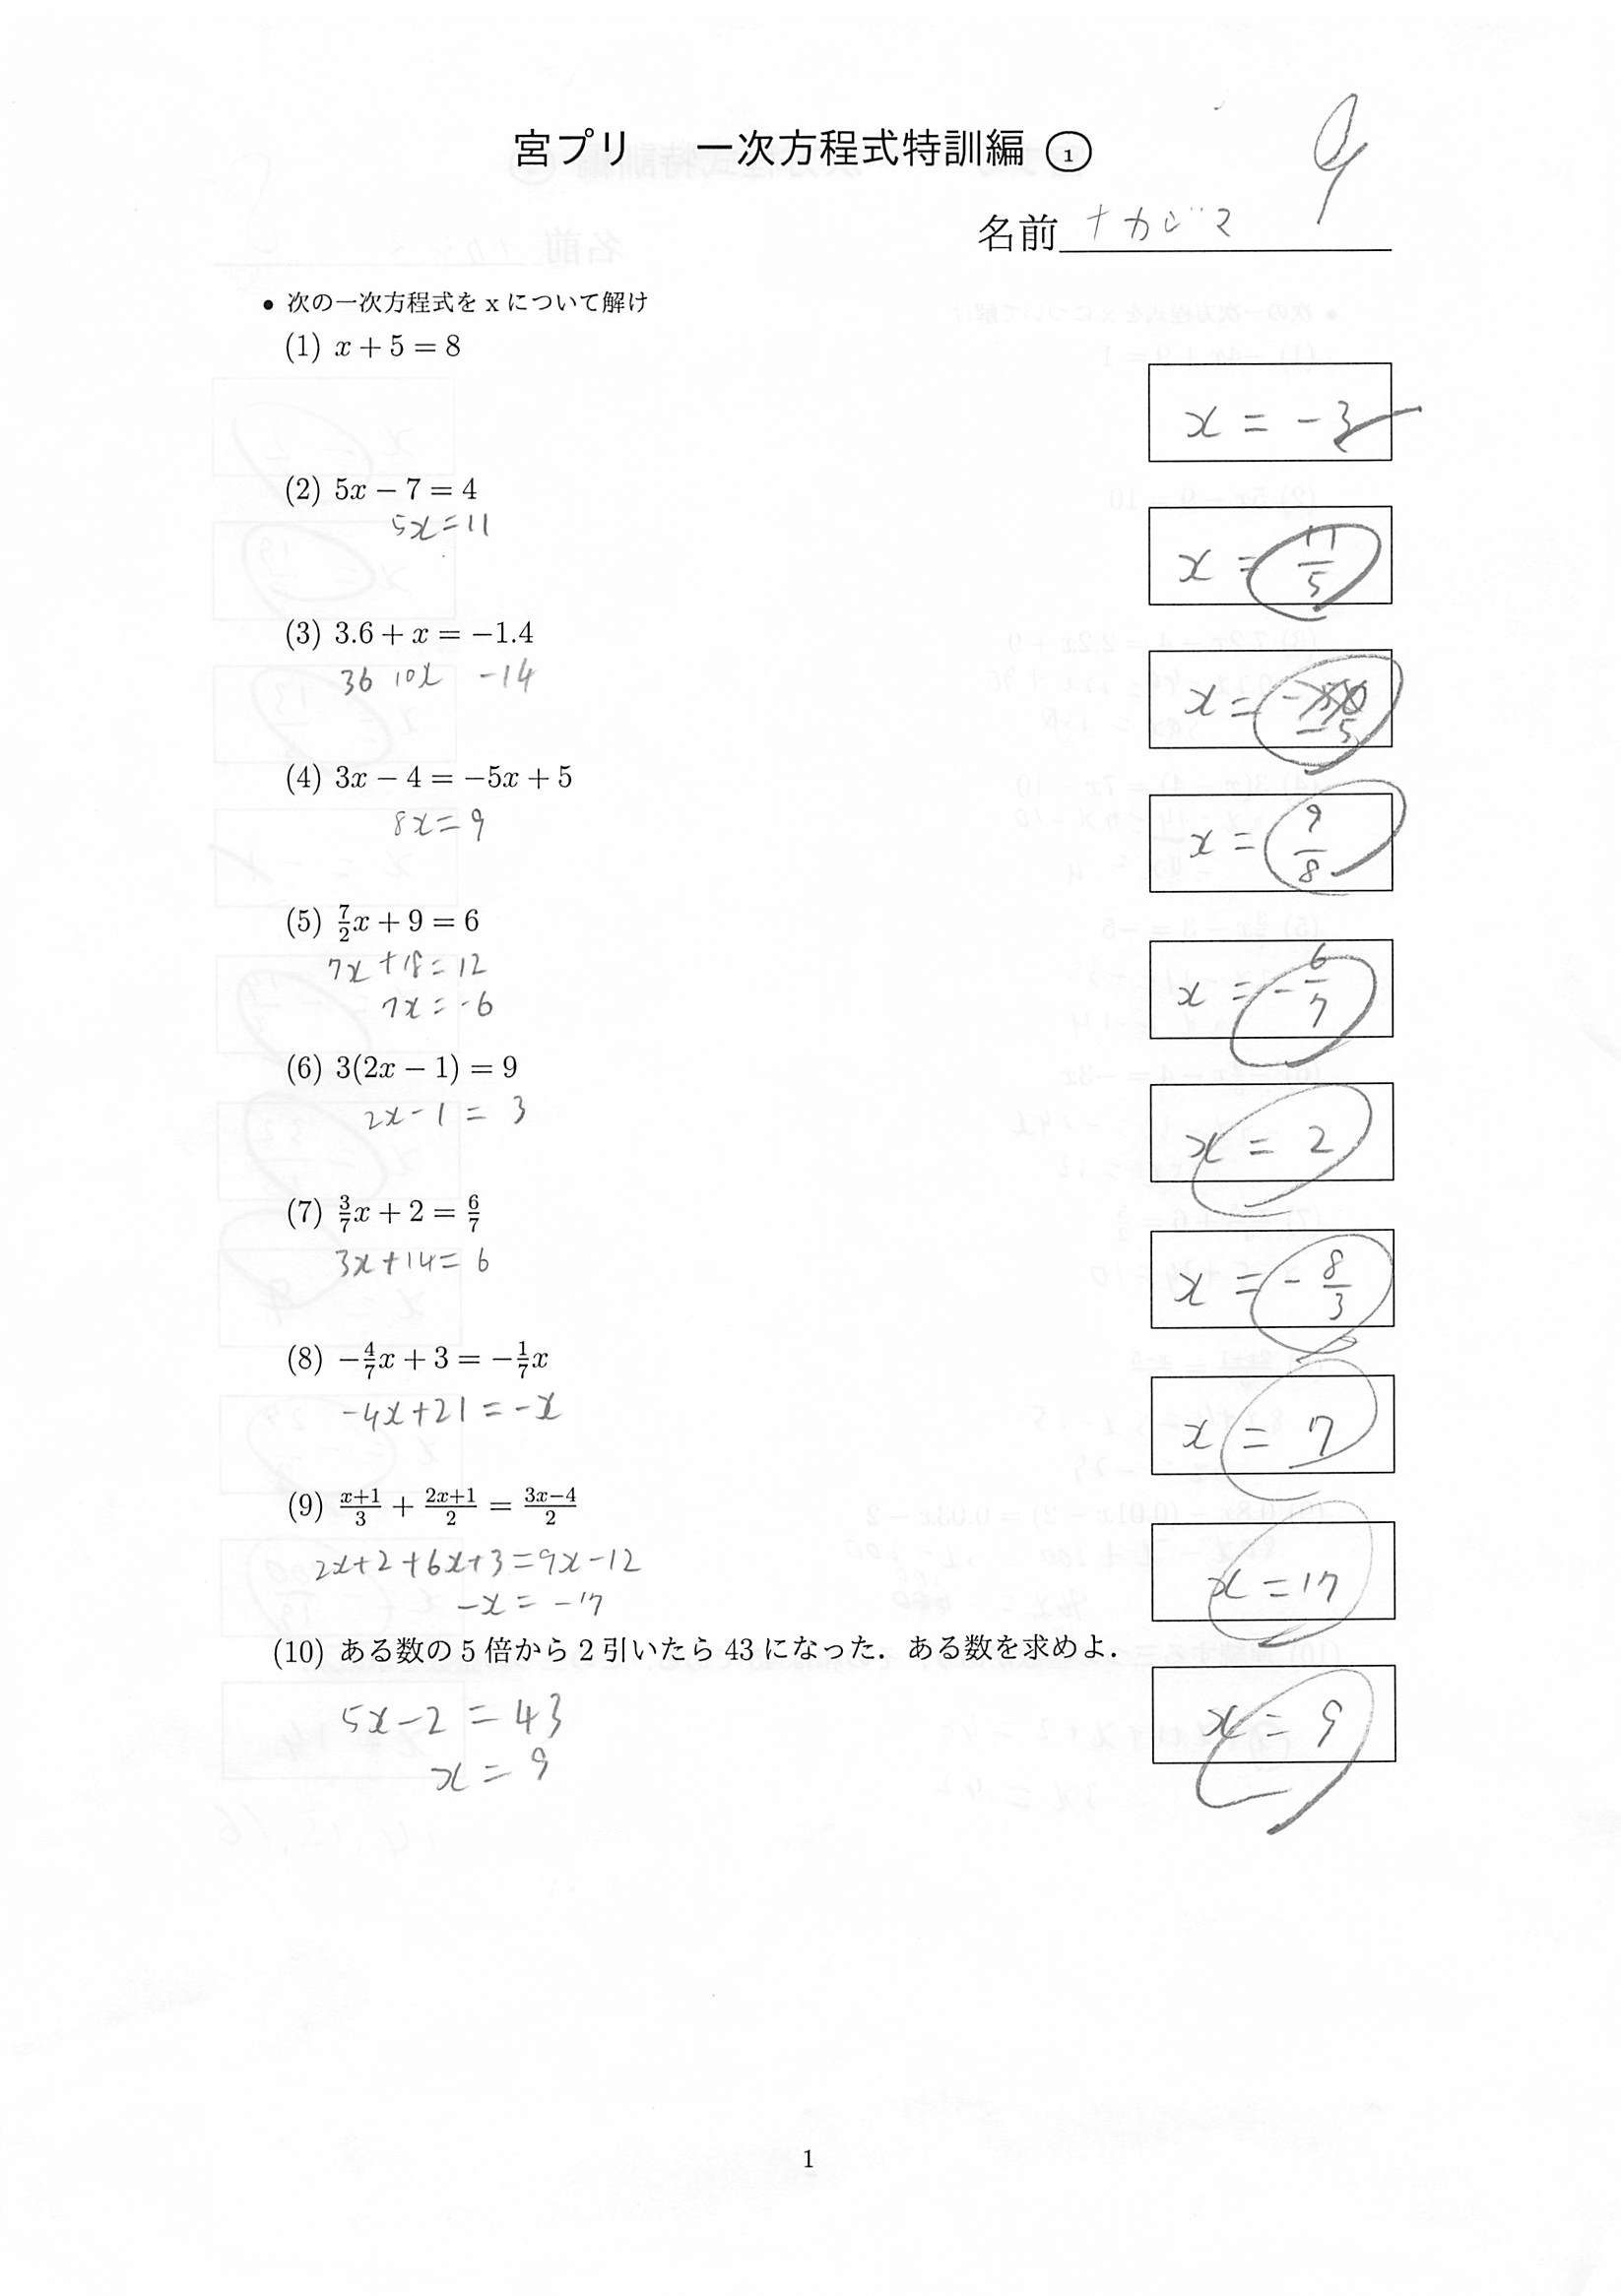 宮プリ 一次方程式特訓編 ①
9
名前 ナカジマ
• 次の一次方程式を x について解け
(1) x + 5 = 8
x = -3
(2) 5x − 7 = 4
5x = 11
x = 11/5
(3) 3.6 + x = −1.4
36 10x -14
x = -5
(4) 3x − 4 = −5x + 5
8x = 9
x = 9/8
(5) 7/2x + 9 = 6
7x + 18 = 12
7x = -6
x = -6/7
(6) 3(2x − 1) = 9
2x - 1 = 3
x = 2
(7) 3/7x + 2 = 6/7
3x + 14 = 6
x = -8/3
(8) −4/7x + 3 = −1/7x
-4x + 21 = -x
x = 7
(9) x+1/3 + 2x+1/2 = 3x−4/2
2x + 2 + 6x + 3 = 9x - 12
-x = -17
x = 17
(10) ある数の 5 倍から 2 引いたら 43 になった．ある数を求めよ．
5x - 2 = 43
x = 9
x = 9
1